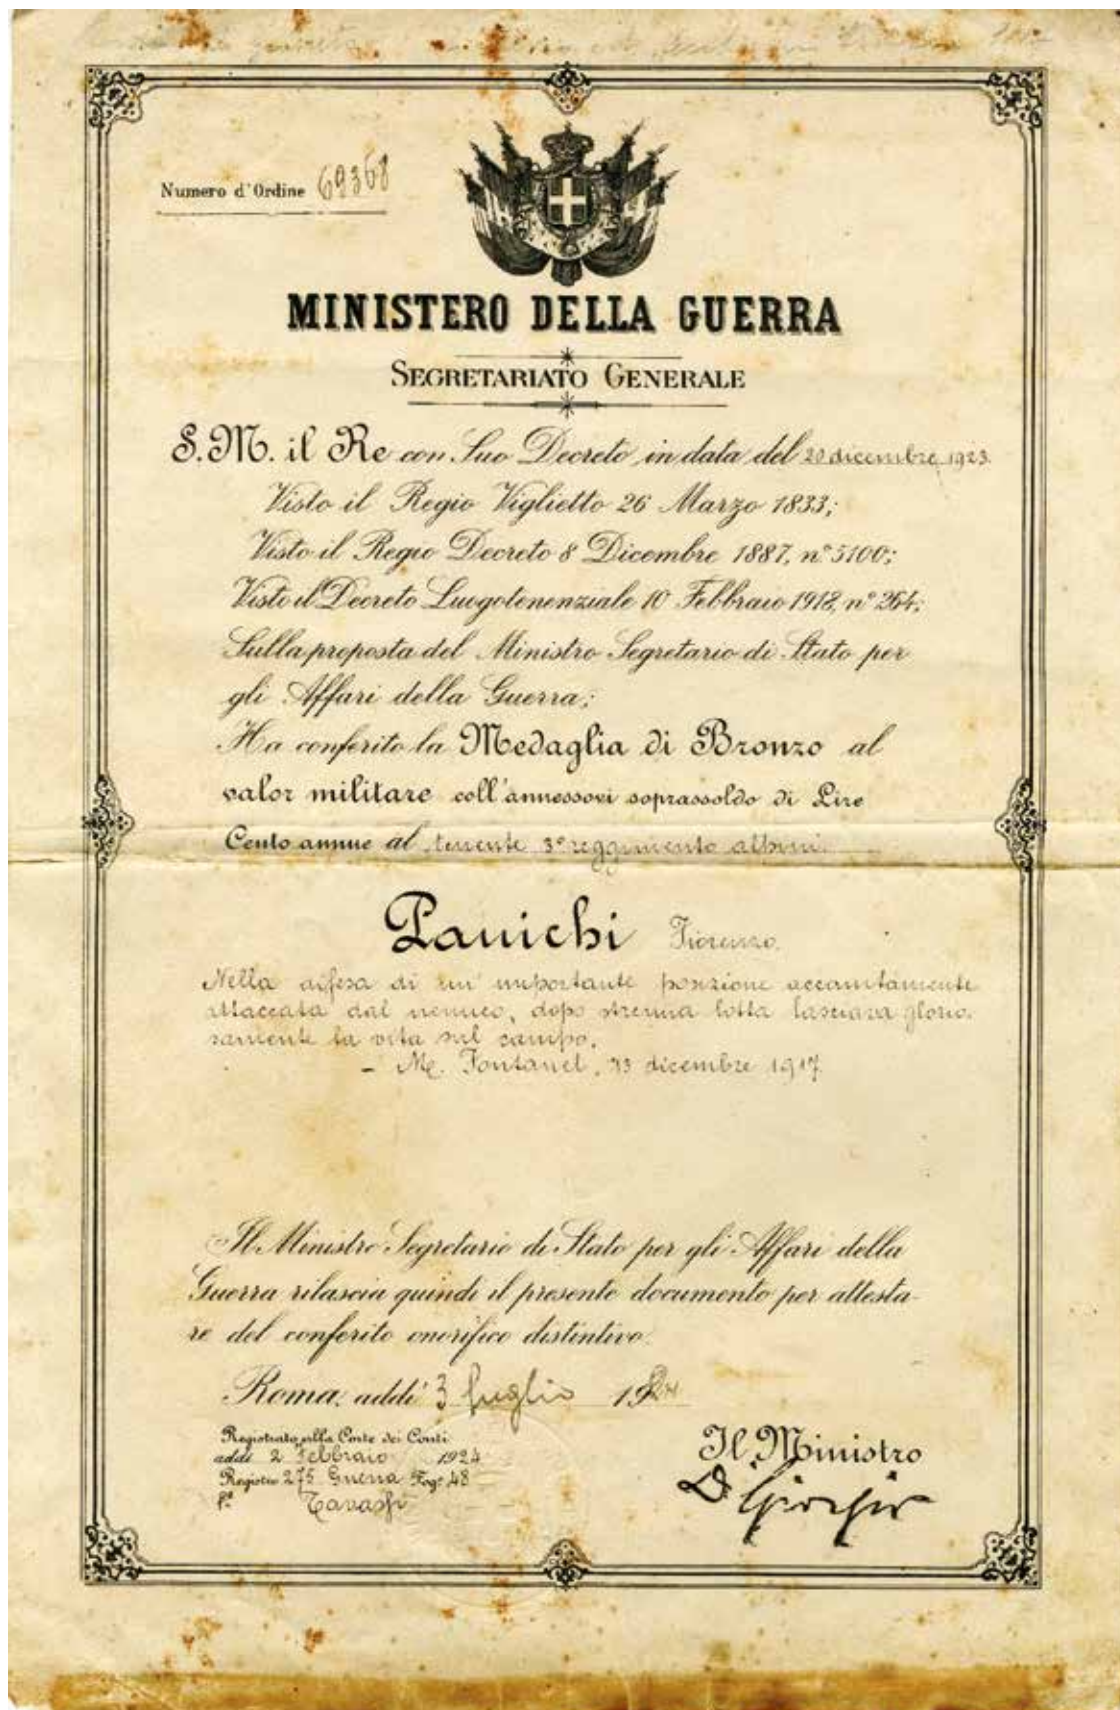 Numero d'Ordine 69368
MINISTERO DELLA GUERRA
SEGRETARIATO GENERALE
S. M. il Re con Suo Decreto in data del 20 dicembre 1923
Visto il Regio Viglietto 26 Marzo 1833;
Visto il Regio Decreto 8 Dicembre 1887, nº 5100;
Visto il Decreto Luogotenenziale 10 Febbraio 1918, nº 264;
Sulla proposta del Ministro Segretario di Stato per
gli Affari della Guerra;
Ha conferito la Medaglia di Bronzo al
valor militare coll'annessovi soprassoldo di Lire
Cento annue al tenente 3º reggimento alpini
Panichi Fiorenzo
Nella difesa di un' importante posizione accanitamente
attaccata dal nemico, dopo strenua lotta lasciava glorio-
samente la vita sul campo.
- M. Fontanel, dicembre 1917
Il Ministro Segretario di Stato per gli Affari della
Guerra rilascia quindi il presente documento per attesta-
re del conferito onorifico distintivo.
Roma, addì 3 luglio 1924
Registrato alla Corte dei Conti
addì 2 Febbraio 1924
Registro 275 Guerra Fog. 48
Il Ministro
Di Giorgio